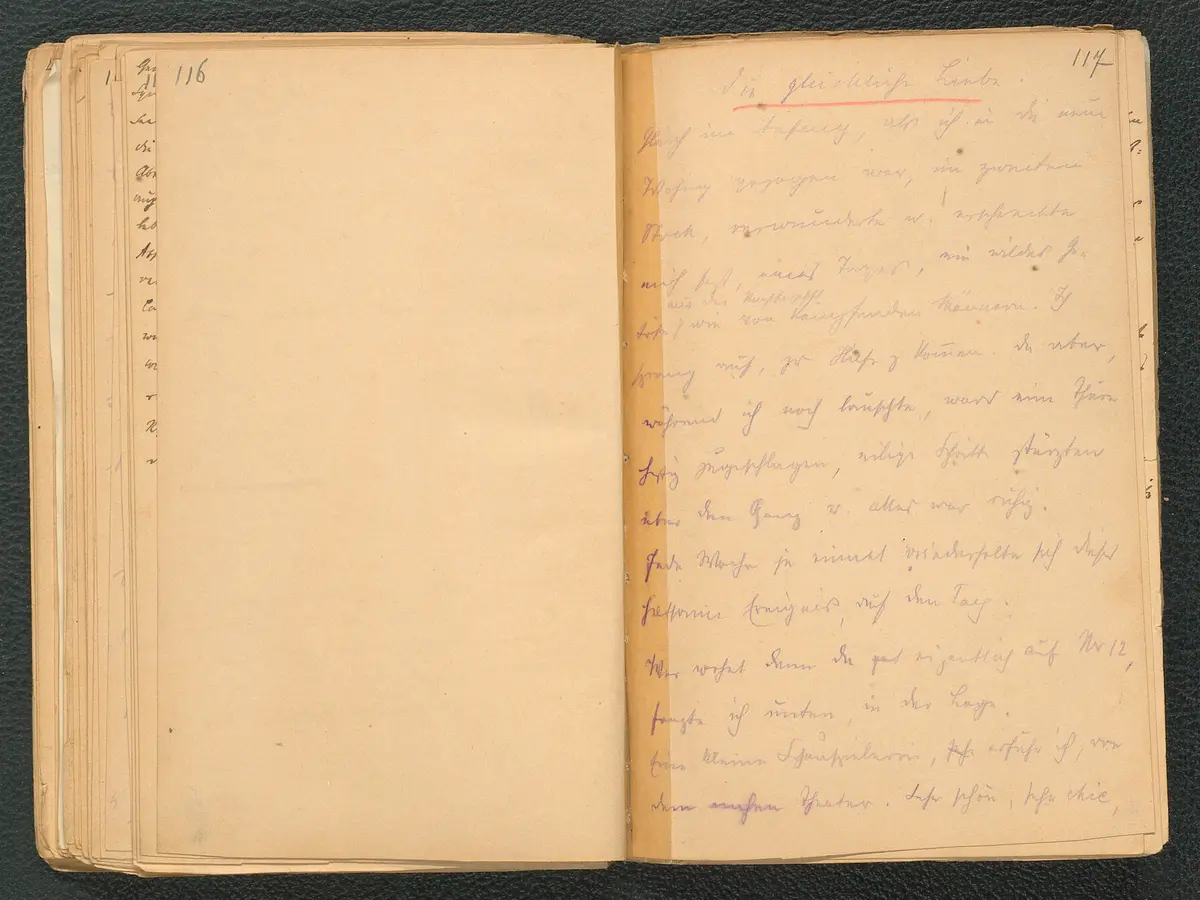 116
117
Die glückliche Liebe.
Gleich im Anfang, als ich in die neue
Wohng gezogen war, im zweiten
Stock, verwunderte u. erschreckte
mich fast, eines Tages, ein wildes Ge-
aus der Nachbarschft
töse, wie von kämpfenden Männern. Ich
sprang auf, zu Hilfe z kommen. Da aber,
während ich noch lauschte, ward eine Thüre
heftig zugeschlagen, eilige Schritte stürzten
über den Gang u. alles war ruhig.
Jede Woche je einmal wiederholte sich dieses
seltsame Ereignis, auf den Tag.
Wer wohnt denn da eigentlich auf Nr 12,
fragte ich unten, in der Loge.
Eine kleine Schauspielerin, erfuhr ich, von
dem Theater. Sehr schön, sehr chic,